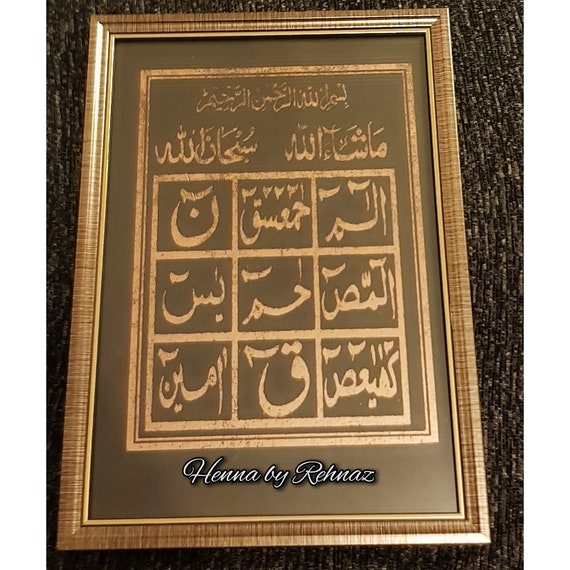 بسم الله الرحمن الرحيم
ماشاء الله سبحان الله
الم حمعسق ن
المص لحم يس
كهيعص ق امين
Henna by Rehnaz